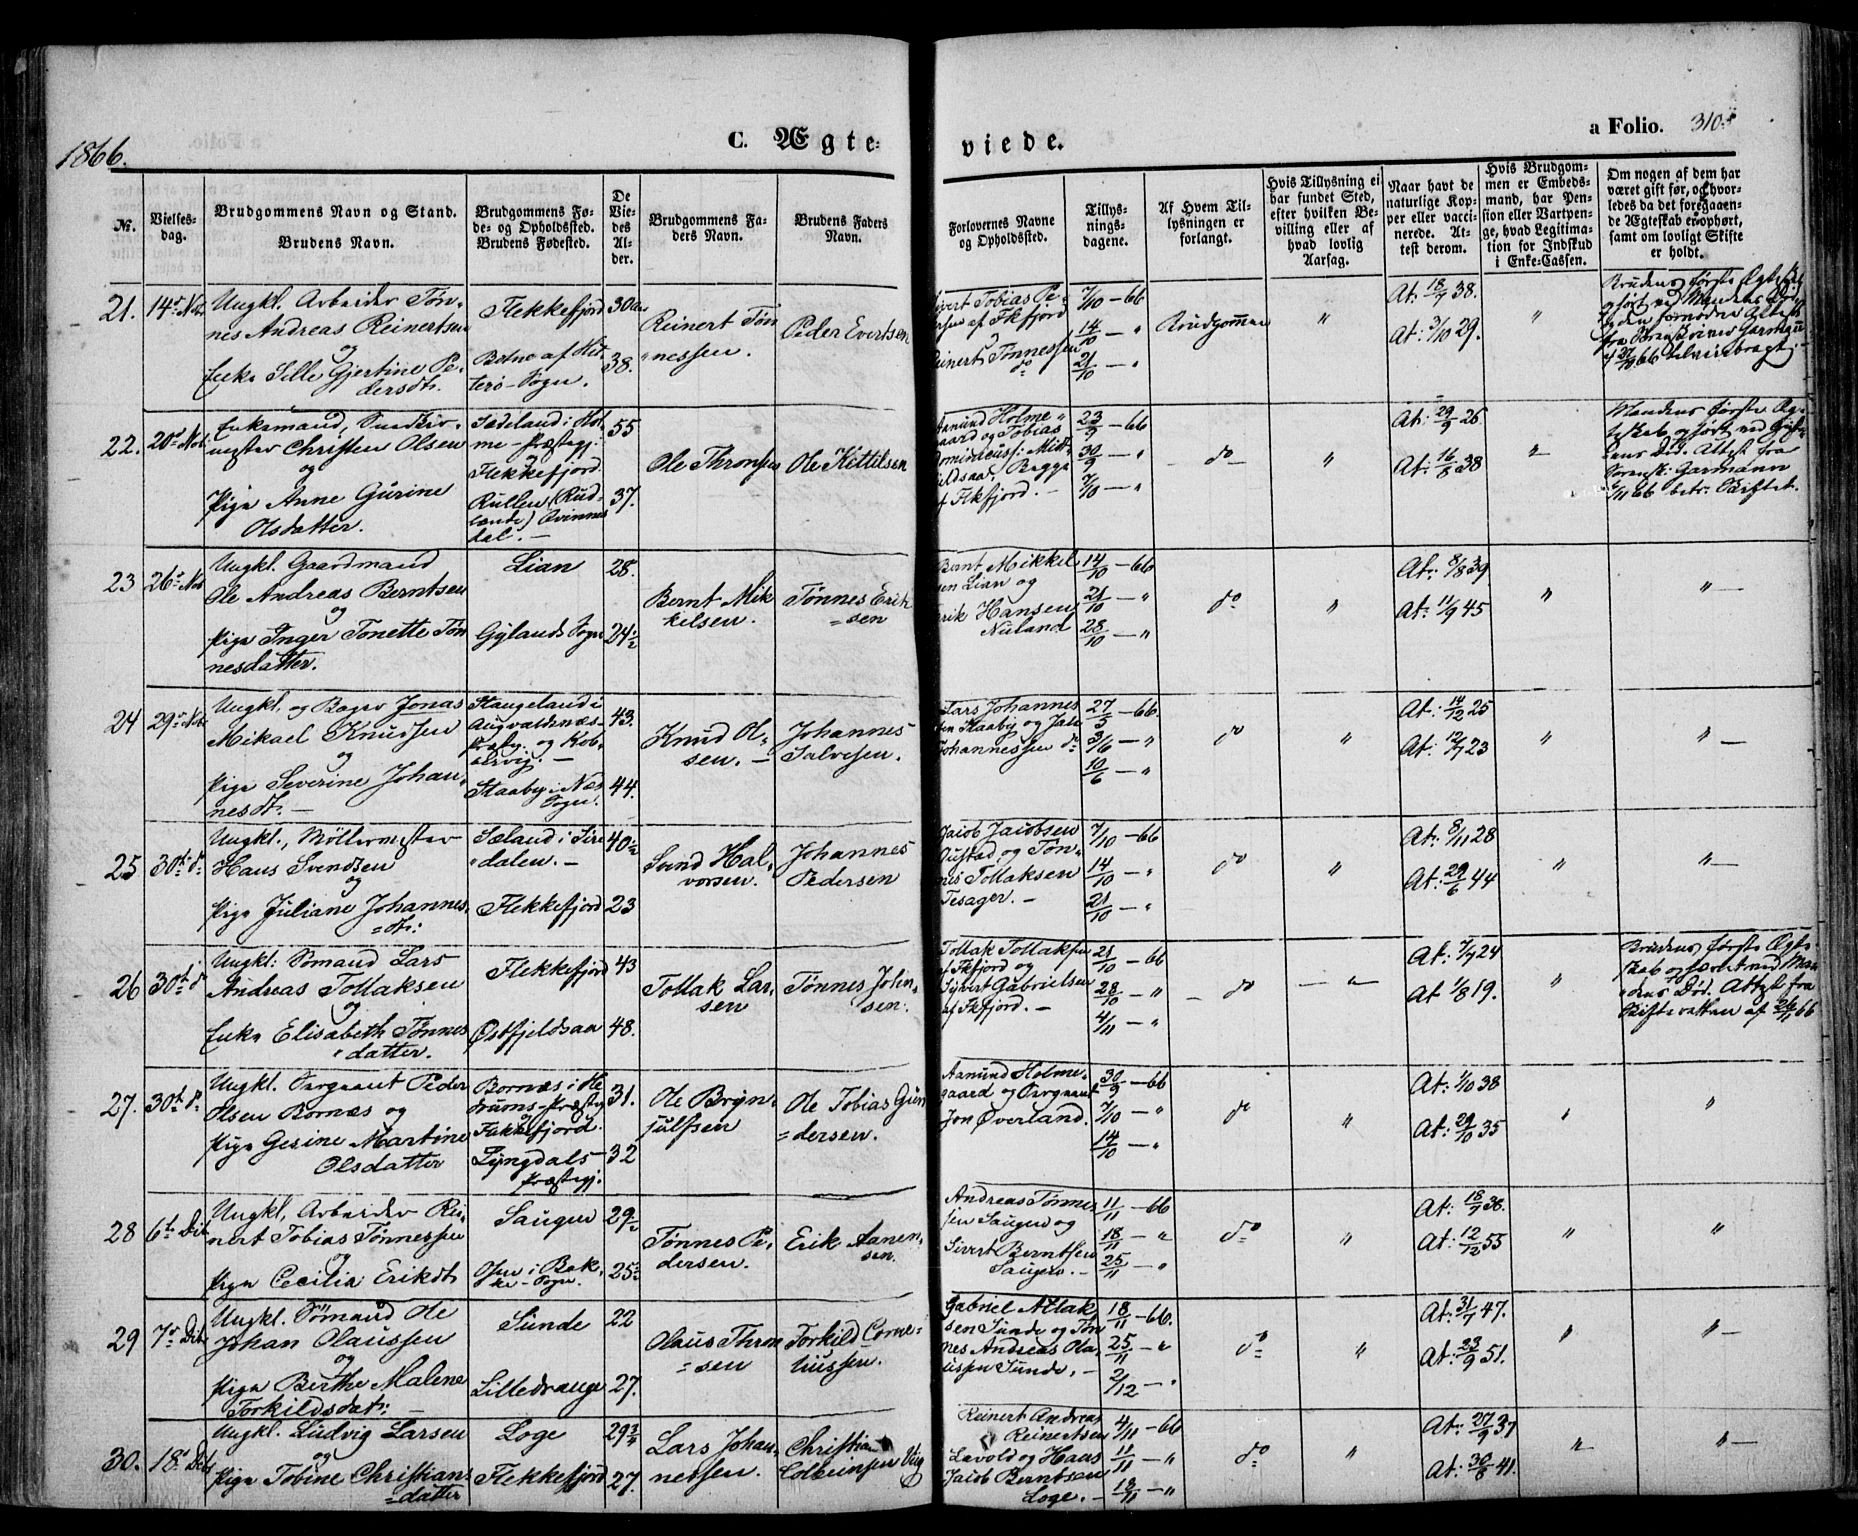 1866.
C. Ægte-
viede.
a Folio. 310.
№.
Vielses-
dag.
Brudgommens Navn og Stand.
Brudens Navn.
Brudgommens Fø-
de- og Opholdssted.
Brudens Fødested.
De
Vie-
des
Al-
der.
Brudgommens Fa-
ders Navn.
Brudens Faders
Navn.
Forlovernes Navne
og Opholdssted.
Tillys-
nings-
dagene.
Af Hvem Til-
lysningen er
forlangt.
Hvis Tillysning ei
har fundet Sted,
efter hvilken Be-
villing eller af
hvad lovlig
Aarsag.
Naar havt de
naturlige Kop-
per eller vacci-
nerede. At-
test derom.
Hvis Brudgom-
men er Embeds-
mand, har Pen-
sion eller Vartpen-
ge, hvad Legitima-
tion for Indskud
i Enke-Cassen.
Om nogen af dem har
været gift før, og hvor-
ledes da det foregaaen-
de Ægteskab er ophørt,
samt om lovligt Skifte
er holdt.
21. 14de Nov.
Ungkl. Arbeider Tøn-
nes Andreas Reinertsen
og
Enke Sille Gjertine Pe-
dersdt.
Flekkefjord
Botne af Hit-
terø-Sogn.
30
38.
Reinert Tøn
nessen.
Peder Evertsen
Sivert Tobias Pe-
ersen af Fkfjord
Reinert Tønnessen
do
7/10 - 66
14/10 - "
21/10 - "
Brudgommen
"
At: 18/7 38.
At: 3/10 29.
"
Brudens første Ægtesk.
ophørt ved Mandens Død
22. 20de Nov.
Enkemand,
Christen Olsen
og
Pige Anne Gurine
Olsdatter.
Sædeland i Hol-
me-Præstegj:
Flekkefjord
Rullen (Rud-
lande) Qvinnes
dal.-
55
37.
Ole Thronsen
Ole Kittilsen
Aamund Holme-
gaard og Tobias
Bagge
af Fkfjord. -
23/9 - 66
30/9 - "
7/10 - "
do
"
At: 29/9 26
At: 16/8 38
"
Mandens første Æg-
teskab ophørt ved Hust-
ruens Død. Attest fra
Sorensk: Garmann
6/11 66 betr: Skiftet.
23 26de Nov
Ungkl. Gaardmand
Ole Andreas Berntsen
og
Pige Inger Tonette Tøn
nesdatter.
Lian
Gylands Sogn
28.
24½
Bernt Mik
kelsen.
Tønnes Erik
sen
Bernt Mikkel
sen Lian og
Erik Hansen
Nuland
14/10 - 66
21/10 - "
28/10 - "
do
"
At: 8/8 39
At: 11/9 45
"
" -
24 29de Nov
Ungkl. og Bager Jonas
Mikael Knudsen
og
Pige Severine Johan-
nesdt. -
Stangeland i
Augvaldsnæs
Præstg. og Kob-
bervig. -
Staaby i Næs
Sogn.
43.
44.
Knud Ol-
sen. -
Johannes
Salvesen.
Lars Johannes
sen Staaby og
Johannessen do
27/5 - 66.
3/6 - "
10/6 - "
do
"
At: 14/12 25
At: 12/7 23
"
" -
25 30te do
Ungkl., Møllermester
Hans Svendsen
og
Pige Juliane Johannes-
dt:
Sæland i Sire
dalen. -
Flekkefjord
40½
23
Svend Hal
vorsen.
Johannes
Pedersen
Jacob Jacobsen
og Tøn-
nes Tollaksen
Tesager. -
7/10 - 66
14/10 - "
21/10 - "
do
"
At: 8/11 28
At: 29/6 44
"
" -
26 30te do
Ungkl: Sømand Lars
Andreas Tollaksen
og
Enke Elisabeth Tønnes
datter.
Flekkefjord
Østfjeldsaa
43
48.
Tollak Lar-
sen
Tønnes John-
sen.
Tollak Tollaksen
af Fkfjord og
Sivert Gabrielsen
af Fkfjord. -
21/10 - 66
28/10 - "
4/11 - "
- do
- " -
At: 7/7 24
At 1/8 19.
"
Brudens første Ægte-
skab ophævet ved Man-
dens Død. Attest fra
Skifteretten af 26/11 66
27. 30te do
Ungkl. Sergeant Peder
Olsen Bornæs og
Pige Gesine Martine
Olsdatter
Bornæs i He
drums-Præstg
Flekkefjord.
Lyngdals-
Præstegj:
31.
32
Ole Bryn-
julfsen
Ole Tobias Gun
dersen.
Aamund Holme-
gaard og Sergeant
Jon Øverland.
30/9 - 66
7/10 - "
14/10 - "
do
"
At: 1/10 38
At: 29/10 35
"
"
28 6te Dec
Ungkl. Arbeider Rei-
nert Tobias Tønnessen
og
Pige Cecilia Eriksdt.
Saugen
Osen i Bak-
ke-Sogn.
29½
25
Tønnes Pe-
dersen.
Erik Aanen-
sen.
Andreas Tønnes
sen Saugen og
Sivert Berntsen
Saugen. -
11/11 - 66
18/11 - "
25/11 - "
do
"
At: 18/7 38.
At: 12/12 55
"
"
29 7de Dec
Ungkl. Sømand Ole
Johan Olaussen
og
Pige Berthe Malene
Torkildsdat: -
Sunde
Lilledrange
22
27.
Olaus Thron
sen
Torkild Corne-
liussen.
Gabriel Atlak
sen Sunde og Tøn
nes Andreas Ola-
ussen Sunde. -
18/11 - 66.
25/11 - "
2/12 - "
do
"
At: 31/7 47.
At: 23/9 51.
"
" -
30. 18de Dec
Ungkl. Ludvig Larsen
og
Pige Tobine Christians-
datter
Loge
Flekkefjord
29¾
27.
Lars Johan-
nessen.
Christian
Colbeinsen
Reinert Andreas
Reinertsen
Lavold og Hans
Jacob Berntsen
Loge. -
4/11 - 66
11/11 - "
18/11 - "
do
"
At: 27/9 37
At: 30/8 41.
" -
" -